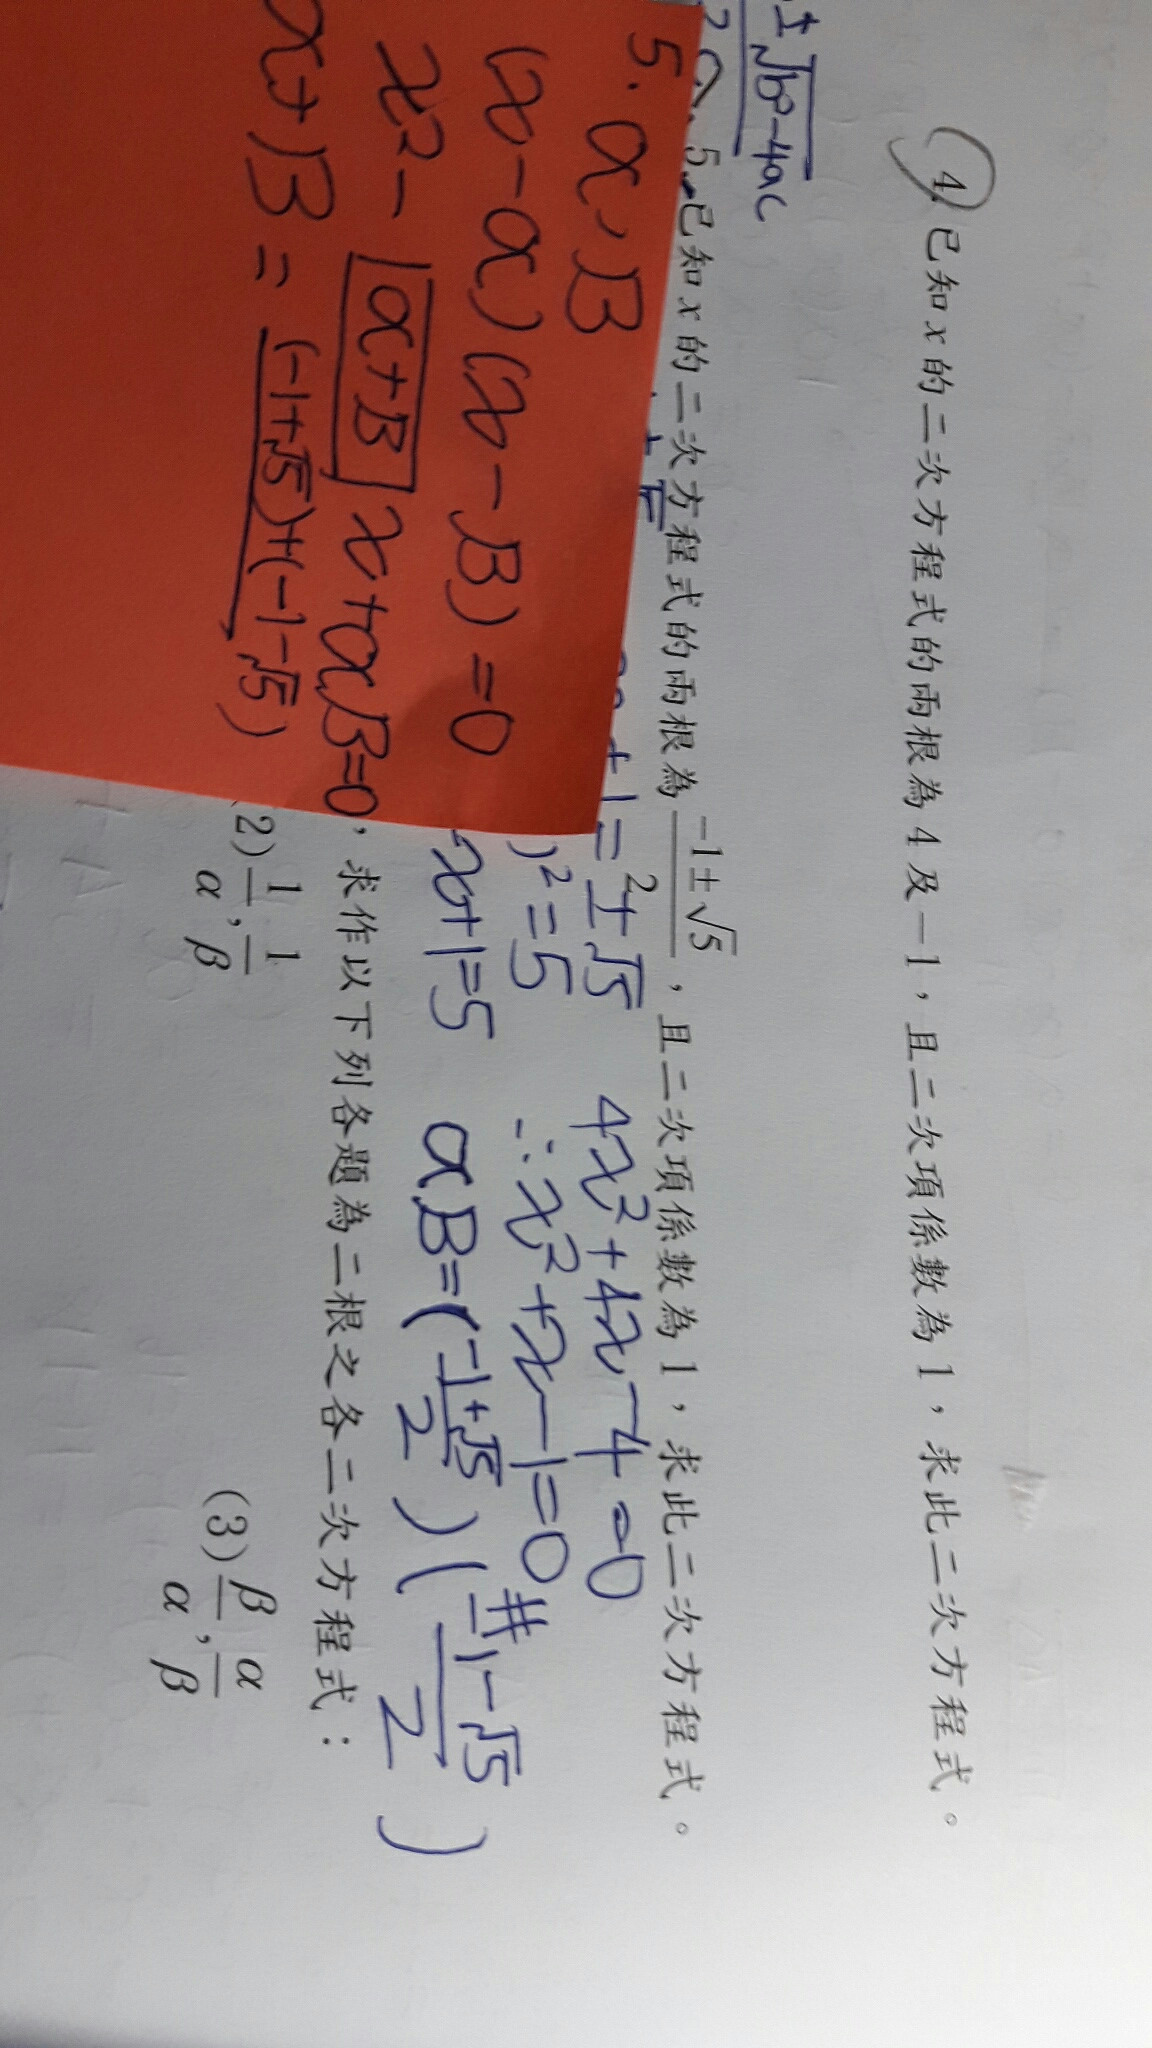 ± √b²-4ac
4 已知 x 的二次方程式的兩根為 4 及 -1,且二次項係數為 1,求此二次方程式。
5. 已知 x 的二次方程式的兩根為 (-1±√5)/2,且二次項係數為 1,求此二次方程式。
+1=±√5
)²=5
x+1=5
4x²+4x-4=0
∴x²+x-1=0 #
αβ=((-1+√5)/2)((-1-√5)/2)
5. α、β
(x-α)(x-β)=0
x²-(α+β)x+αβ=0
α+β=(-1+√5)+(-1-√5)
,求作以下列各題為二根之各二次方程式:
2) 1/α, 1/β
(3) β/α, α/β